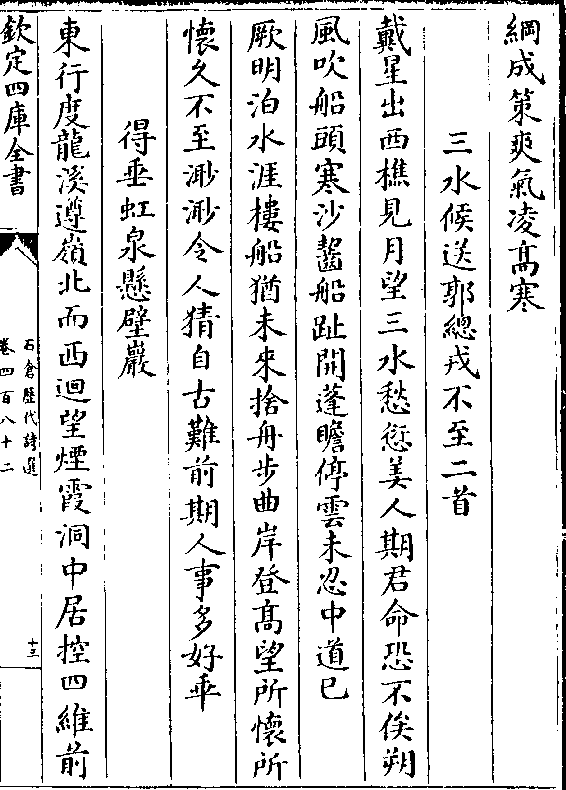 綱成策爽氣凌髙寒
三水候送郭總戎不至二首
戴星出西樵見月望三水愁愆美人期君命恐不俟朔
風吹船頭寒沙齧船趾開蓬瞻停雲未忍中道已
厥明泊水涯樓船猶未來捨舟步曲岸登髙望所懷所
懷久不至渺渺令人猜自古難前期人事多好乖
得垂虹泉懸壁巖
東行度龍溪遵嶺北而西迴望煙霞洞中居控四維前
欽定四庫全書
石倉歴代詩選
卷四百八十二
十三